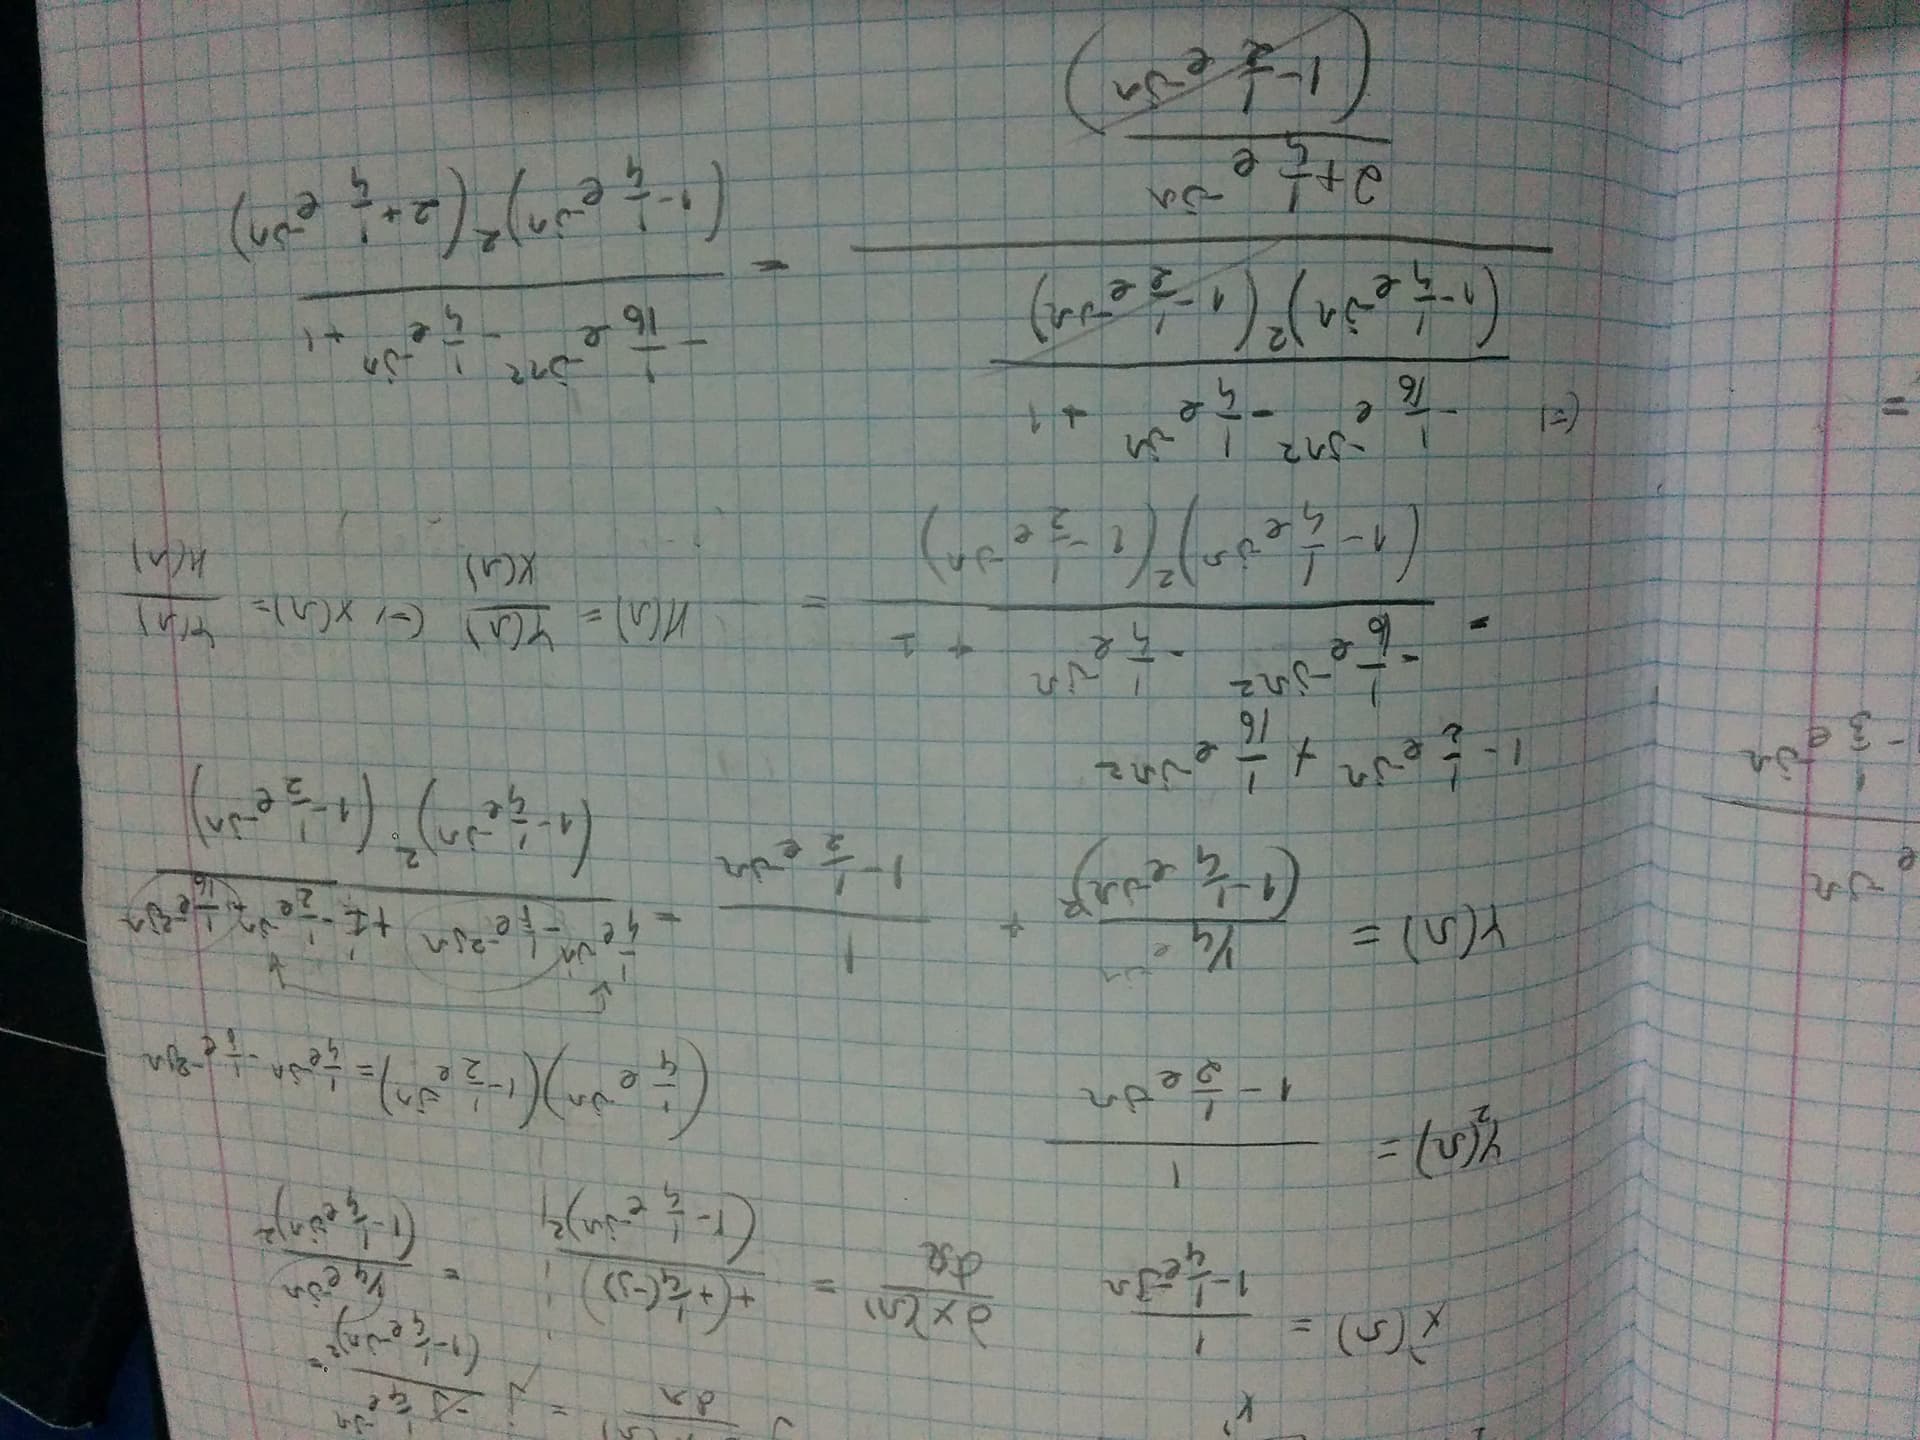 x'
= j (-j 1/4 e^-jΩ) / (1 - 1/4 e^-jΩ)^2 =
X'(Ω) = 1 / (1 - 1/4 e^-jΩ)
dX'(Ω)/dΩ = +(+1/4(-j)) / (1 - 1/4 e^-jΩ)^2
= 1/4 e^-jΩ / (1 - 1/4 e^-jΩ)^2
Y₂(Ω) = 1 / (1 - 1/2 e^-jΩ)
(1/4 e^-jΩ)(1 - 1/2 e^-jΩ) = 1/4 e^-jΩ - 1/8 e^-2jΩ
Y(Ω) = 1/4 e^-jΩ / (1 - 1/4 e^-jΩ)^2 + 1 / (1 - 1/2 e^-jΩ) = (1/4 e^-jΩ - 1/8 e^-2jΩ + 1 - 1/2 e^-jΩ + 1/16 e^-2jΩ) / ((1 - 1/4 e^-jΩ)^2 (1 - 1/2 e^-jΩ))
e^-jΩ
- 1/3 e^-jΩ
1 - 1/2 e^-jΩ + 1/16 e^-jΩ2
= (-1/16 e^-jΩ2 - 1/4 e^-jΩ + 1) / ((1 - 1/4 e^-jΩ)^2 (1 - 1/2 e^-jΩ)) =
H(Ω) = Y(Ω)/X(Ω) (=) X(Ω) = Y(Ω)/H(Ω)
=
(=) ((-1/16 e^-jΩ2 - 1/4 e^-jΩ + 1) / ((1 - 1/4 e^-jΩ)^2 (1 - 1/2 e^-jΩ))) / ((2 + 1/4 e^-jΩ) / (1 - 1/2 e^-jΩ))
= (-1/16 e^-jΩ2 - 1/4 e^-jΩ + 1) / ((1 - 1/4 e^-jΩ)^2 (2 + 1/4 e^-jΩ))